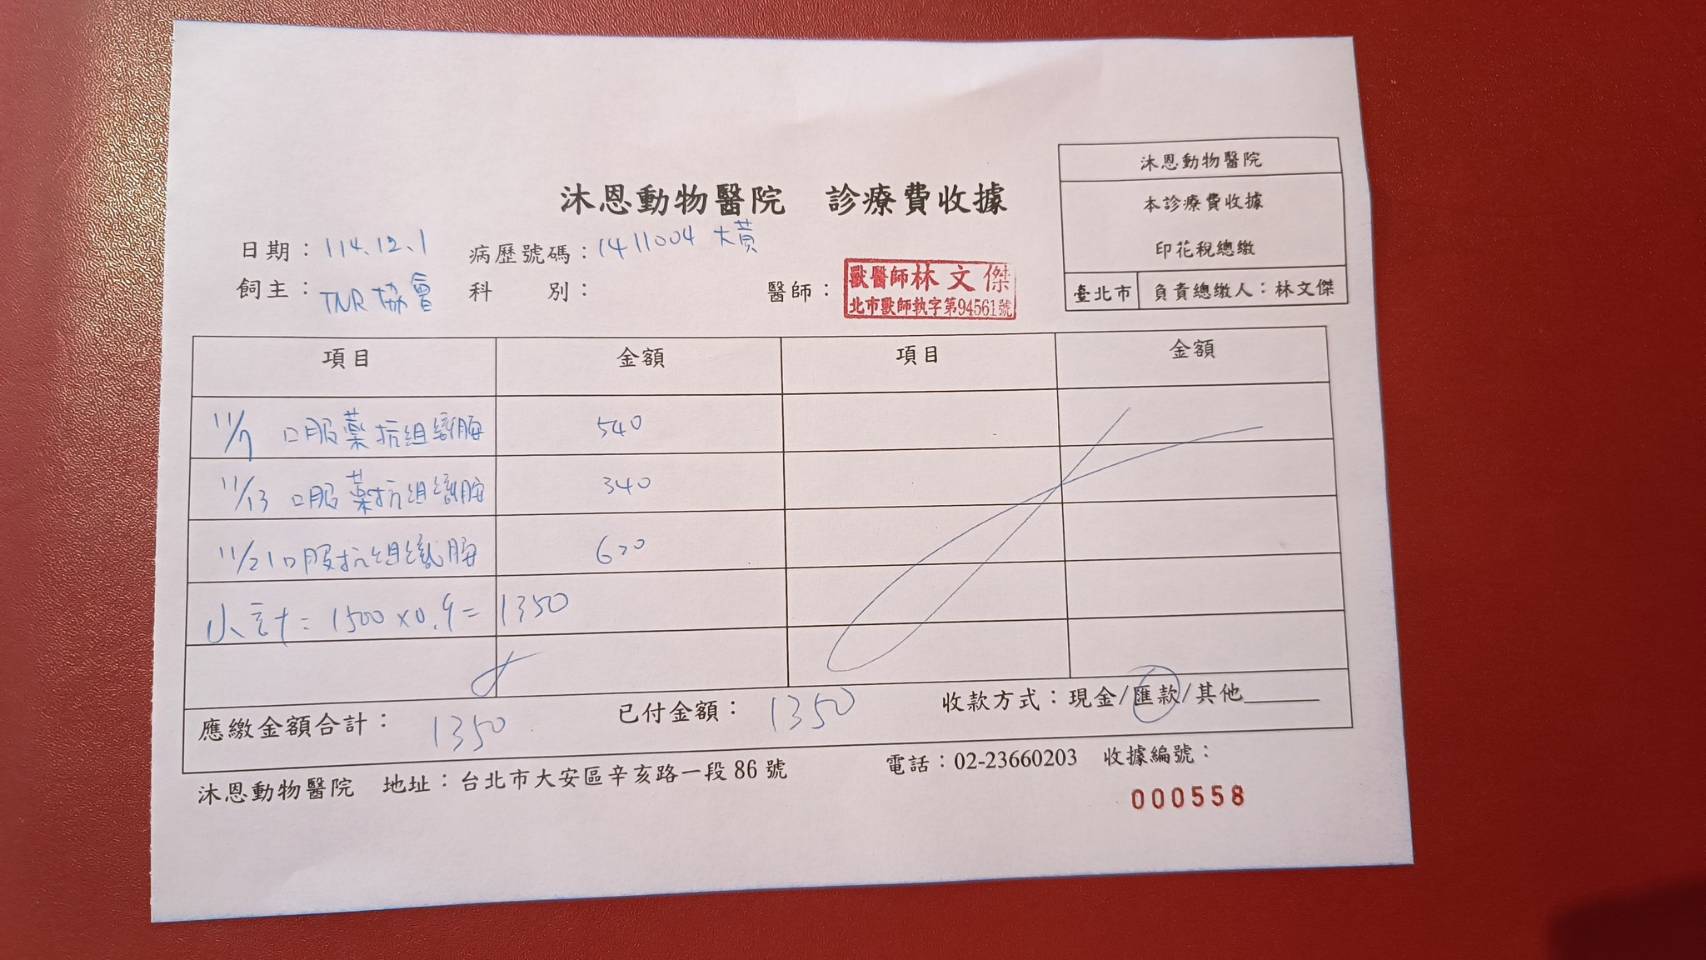 沐恩動物醫院 診療費收據
沐恩動物醫院
本診療費收據
印花稅總繳
臺北市 負責總繳人：林文傑
日期：114.12.1 病歷號碼：1411004 大黃
飼主：TNR 協會 科 別： 醫師：
獸醫師林文傑
北市獸師執字第94561號
項目 金額 項目 金額
11/7 口服藥抗組織胺 540
11/13 口服藥抗組織胺 340
11/21 口服抗組織胺 620
小計= 1500 x0.9= 1350
應繳金額合計： 1350 已付金額： 1350 收款方式：現金/匯款/其他
沐恩動物醫院 地址：台北市大安區辛亥路一段 86 號 電話：02-23660203 收據編號：
000558